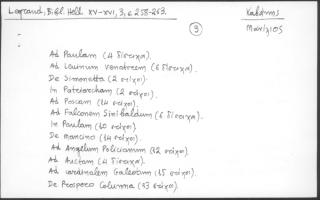 Legrand, Bibl. Hell. XV-XVI, 3, σ 258-263.
9
Ad Paulam (4 δίστιχα).
Ad Lavinum Venatorem (6 δίστιχα).
De Simonetta (2 στίχοι)
In Patriarcham (2 στίχοι).
Ad Poscam (14 στίχοι).
Ad Falconem Sinibaldum (6 δίστιχα).
In Paulam (10 στίχοι).
De Mancino (14 στίχοι).
Ad Angelum Policianum (32 στίχοι).
Ad Auctam (4 δίστιχα).
Ad cardinalem Galeotum (15 στίχοι).
De Prospero Columna (13 στίχοι).